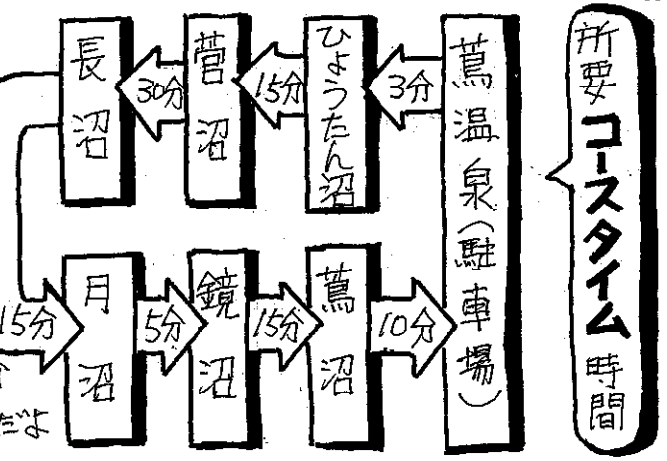 所要コースタイム時間
蔦温泉(駐車場)
3分
ひょうたん沼
15分
菅沼
30分
長沼
15分
月沼
5分
鏡沼
15分
蔦沼
10分
だよ